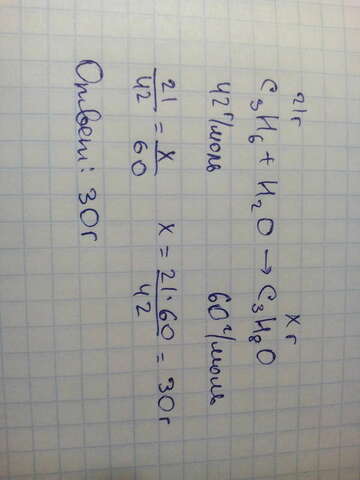 21г Xг
C₃H₆ + H₂O → C₃H₈O
42г/моль 60г/моль
21/42 = X/60 X = 21·60/42 = 30г
Ответ: 30г